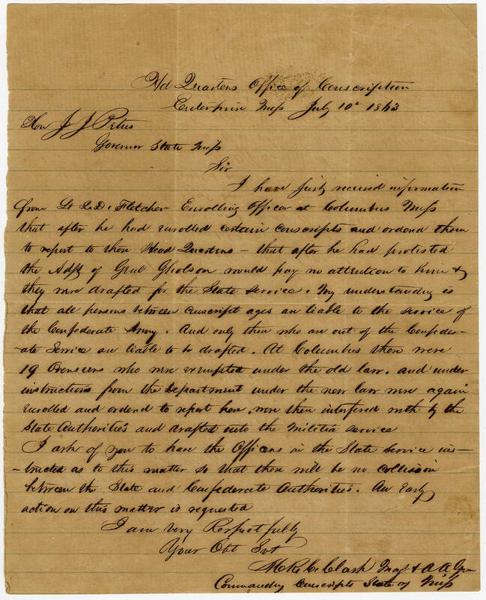 Hd Quarters Office of Conscription
Enterprise Miss July 10th 1863
Hon J J Pettus
Governor State Miss
Sir
I have justly received information
from Lt Fletcher Enrolling Officer at Columbus Miss
that after he had enrolled certain conscripts and ordered them
to report to these Head Quarters - that after he had protested
the of Genl Gholson would pay no attention to him &
they were drafted for the State service. My understanding is
that all persons between conscript ages are liable to the service of
the Confederate Army. And only those who are out of the Confeder-
-ate Service are liable to be drafted. At Columbus there were
19 Overseers who were exempted under the old law. and under
instructions from the Department under the new law were again
enrolled and ordered to report here. were then interfered with by the
State Authorities and drafted into the Militia service
I ask of you to have the Officers in the State service ins-
-tructed as to this matter so that there will be no Collision
between the State and Confederate Authorities. An Early
action on this matter is requested
I am very Respectfully
Your Obt Svt
Clark Maj & A A Gen
Commanding Conscripts State of Miss